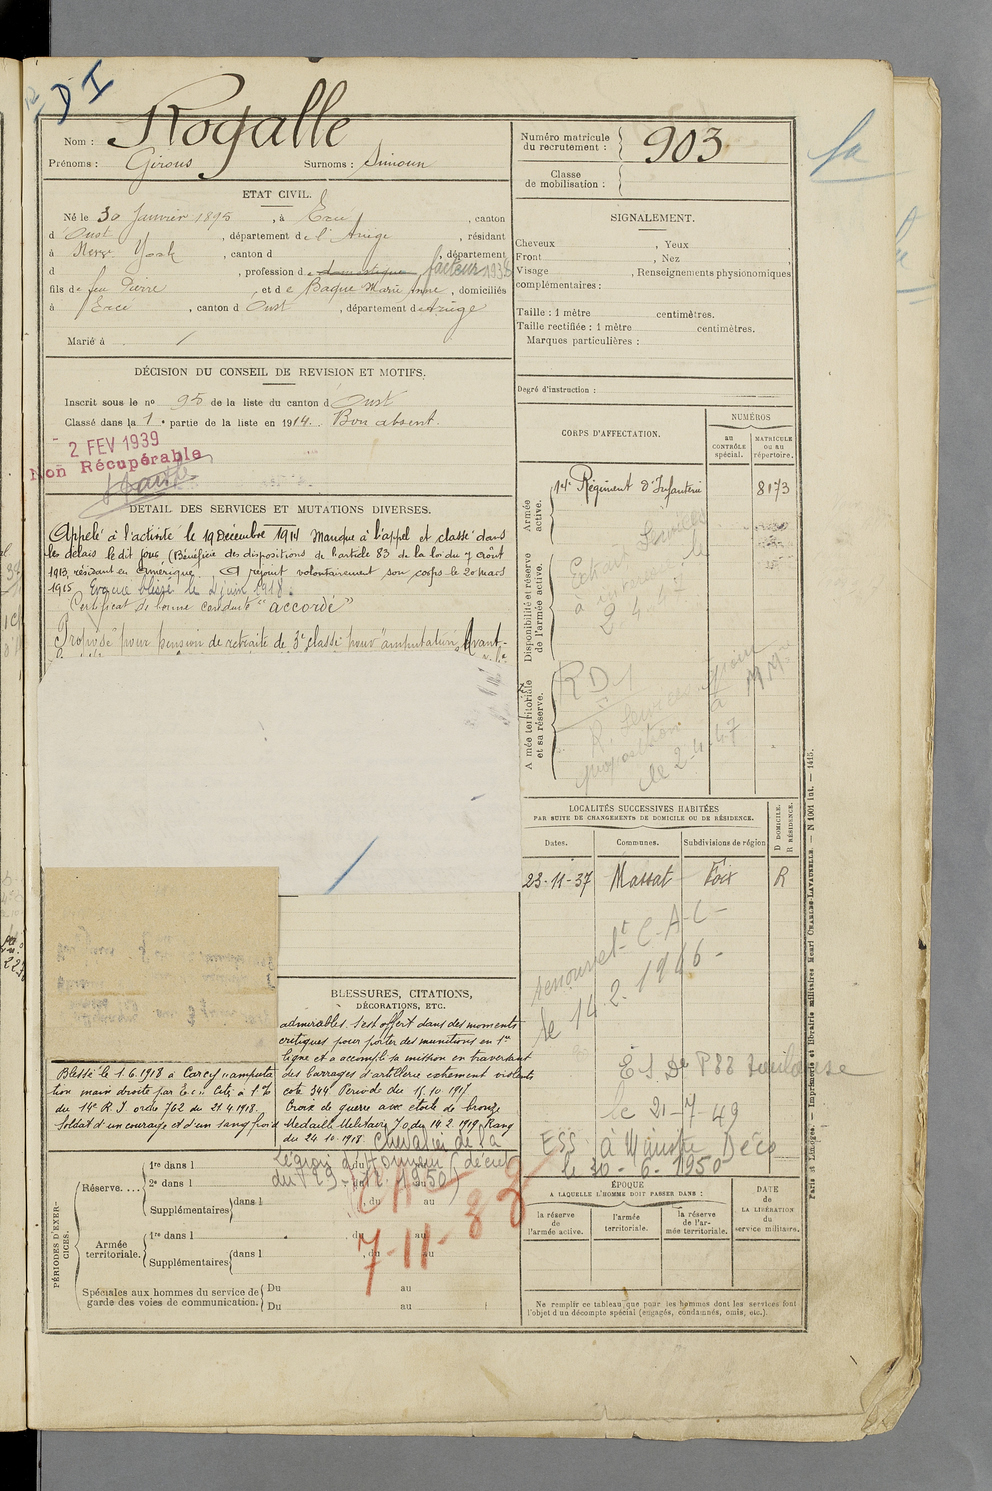 D I
Nom : Rogalle
Prénoms : Girons Surnoms : Simoun
ETAT CIVIL.
Né le 30 Janvier 1895, à Ercé, canton
d'Oust, département de l'Ariège, résidant
à New York, canton d , département
d , profession de domestique facteur 1938
fils de feu Pierre et de Baque Marie Anne, domiciliés
à Ercé, canton d'Oust, département d'Ariège
Marié à /
DÉCISION DU CONSEIL DE REVISION ET MOTIFS.
Inscrit sous le no 95 de la liste du canton d'Oust
Classé dans la 1e partie de la liste en 1914. Bon absent.
- 2 FEV 1939
Non Récupérable
DETAIL DES SERVICES ET MUTATIONS DIVERSES.
Appelé à l'activité le 19 Décembre 1914 Manque à l'appel et classé dans
les délais le dit jour (Bénéficie des dispositions de l'article 83 de la loi du 7 août
1913, résidant en Amérique. A rejoint volontairement son corps le 20 mars
1915 Evacué blessé le 2 juin 1918.
Certificat de bonne conduite "accordé"
Proposé pour pension de retraite de 3e classe pour "amputation Avant-
BLESSURES, CITATIONS,
DÉCORATIONS, ETC.
Blessé le 1.6.1918 à Carcy "amputa
tion main droite par E.O." Cité à l'O
du 14e R.I. ordre 762 du 21.4.1918.
Soldat d'un courage et d'un sang froid
admirables. s'est offert dans des moments
critiques pour porter des munitions en 1re
ligne et a accompli sa mission en traversant
des barrages d'artillerie extrêment violents
cote 344 Période du 15.10.1917
Croix de guerre avec étoile de bronze
Médaille Militaire J.O. du 14.2.1919. Rang
du 24.10.1918. Chevalier de la
Légion d'Honneur (décret
du 29-12-1950)
PÉRIODES D'EXERCICES.
Réserve....
1re dans l , du au
2e dans l , du au
Supplémentaires dans l , du au
Armée territoriale.
1re dans l , du au
Supplémentaires dans l , du au
Spéciales aux hommes du service de garde des voies de communication.
Du au
Du au
CAC
7-11-33
Numéro matricule du recrutement : 903
Classe de mobilisation :
SIGNALEMENT.
Cheveux , Yeux
Front , Nez
Visage , Renseignements physionomiques
complémentaires :
Taille : 1 mètre centimètres.
Taille rectifiée : 1 mètre centimètres.
Marques particulières :
Degré d'instruction :
CORPS D'AFFECTATION.
NUMÉROS
au CONTRÔLE spécial.
MATRICULE ou au répertoire.
Armée active.
14e Régiment d'Infanterie 8173
Disponibilité et réserve de l'armée active.
Extrait Services
le
2.4.47
Armée territoriale et sa réserve.
RD1
R. Services pour
proposition
le 2-4-47
LOCALITÉS SUCCESSIVES HABITÉES
PAR SUITE DE CHANGEMENTS DE DOMICILE OU DE RÉSIDENCE.
Dates. Communes. Subdivisions de région
D DOMICILE. R RÉSIDENCE.
23-11-37 Massat Foix R
renouvelt C-A-C-
le 14.2.1946-
E S De P 88 Toulouse
le 21-7-49
ESS à Ministre Déco
le 30-6-1950
ÉPOQUE
A LAQUELLE L'HOMME DOIT PASSER DANS :
la réserve de l'armée active.
l'armée territoriale.
la réserve de l'armée territoriale.
DATE de LA LIBÉRATION du service militaire.
Ne remplir ce tableau que pour les hommes dont les services font
l'objet d'un décompte spécial (engagés, condamnés, omis, etc.).
Paris et Limoges. — Imprimerie et librairie militaires Henri CHARLES-LAVAUZELLE. — N 1001 int. — 1415.